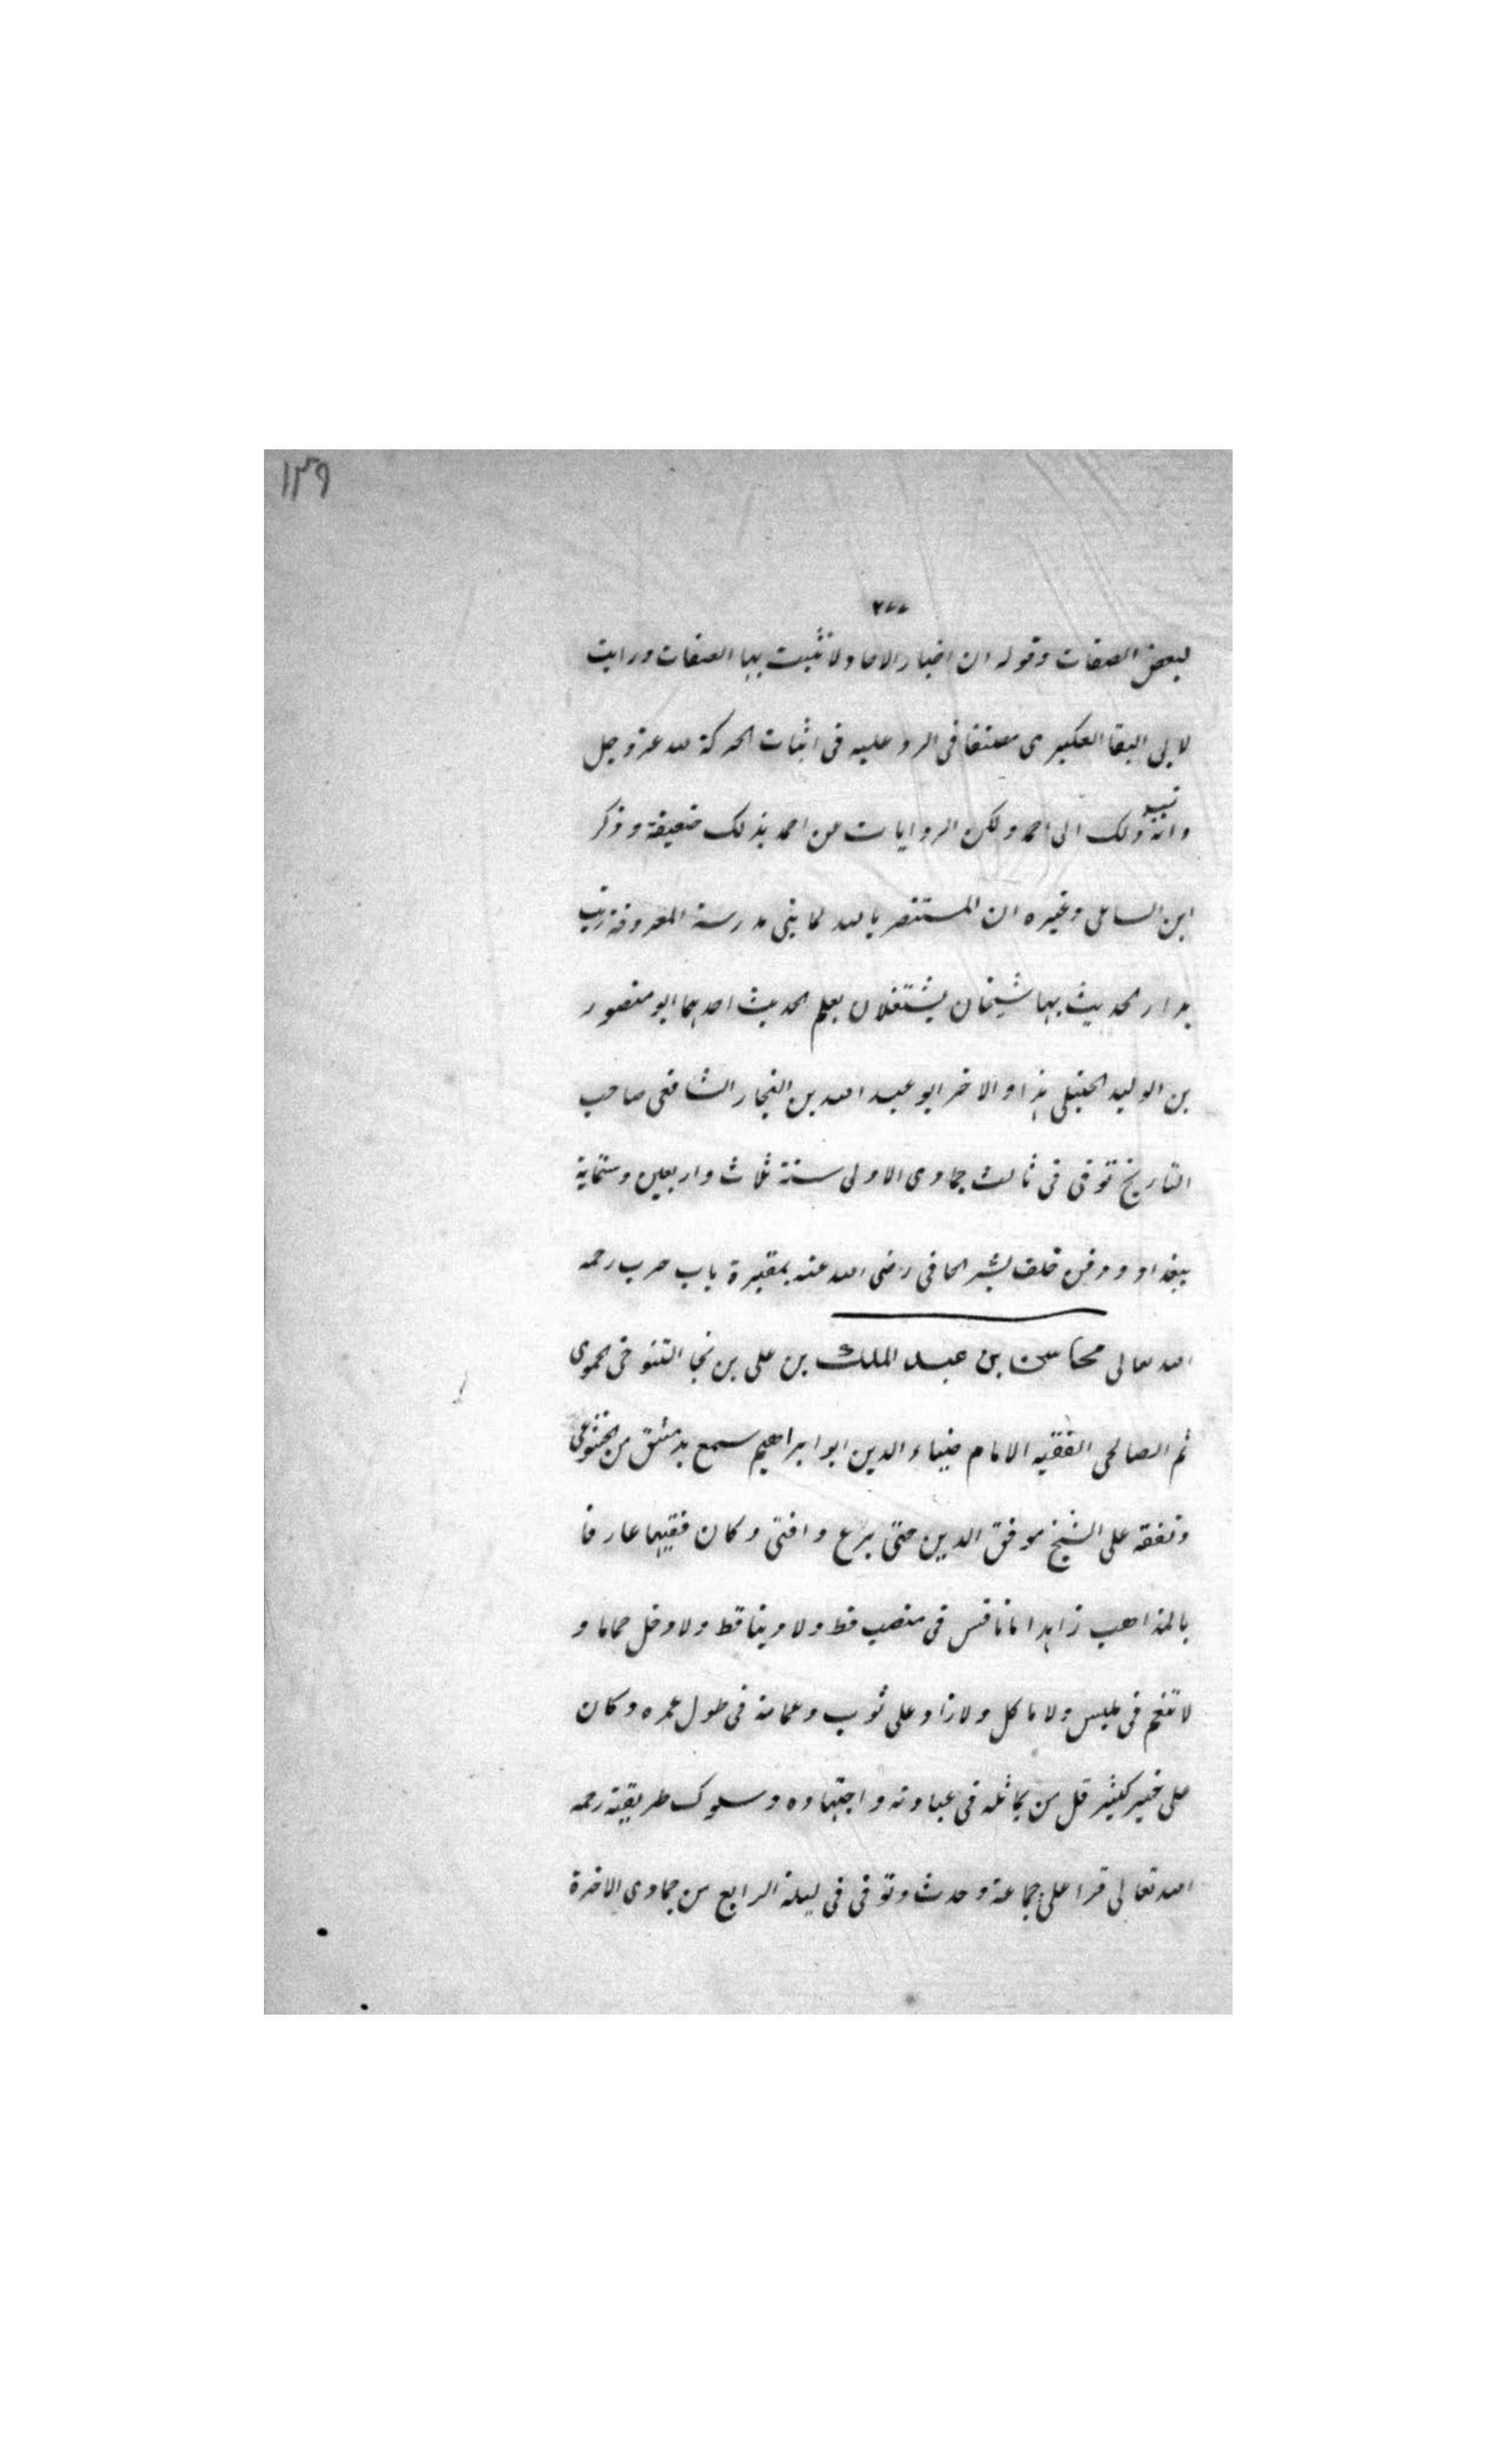 ١٣٩
٢٧٧
لبعض الصفات وقوله ان اخبار الاحاد لا تثبت بها الصفات ورايت
لابى البقا العكبرى مصنفا فى الرد عليه فى اثبات الحركة لله عز وجل
وانه نسب ذلك الى احمد ولكن الروايات عن احمد بذلك ضعيفة وذكر
ابن الساعى وغيره ان المستنصر بالله لما بنى مدرسة المعروفة رتب
بدار الحديث بها شيخان يشتغلان بعلم الحديث احدهما ابو منصور
بن الوليد الحنبلى هذا والاخر ابو عبد الله بن النجار الشافعى صاحب
التاريخ توفى فى ثالث جمادى الاولى سنة ثلاث واربعين وستماية
ببغداد ودفن خلف بشر الحافى رضى الله عنه بمقبرة باب حرب رحمه
الله تعالى محاسن بن عبد الملك بن على بن نجا التنوخى الحموى
ثم الصالحى الفقيه الامام ضياء الدين ابو ابراهيم سمع بدمشق من الخشوعى
وتفقه على الشيخ موفق الدين حتى برع وافتى وكان فقيها عارفا
بالمذاهب زاهدا ما نافس فى منصب قط ولا دينا قط ولا دخل حماما و
لا تنعم فى ملبس ولا ماكل ولا زاد على ثوب وعمامة فى طول عمره وكان
على خير كثير قل من يماثله فى عبادته واجتهاده وسلوك طريقته رحمه
الله تعالى قرا على جماعة وحدث وتوفى فى ليلة الرابع من جمادى الاخرة